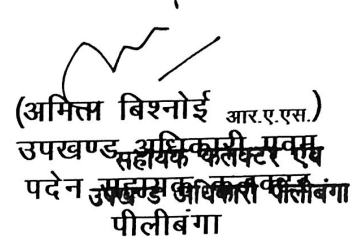 (अमिता बिश्नोई आर.ए.एस.)
उपखण्ड अधिकारी एवम्
सहायक कलक्टर एवं
पदेन सहायक कलक्टर
उपखण्ड अधिकारी पीलीबंगा
पीलीबंगा